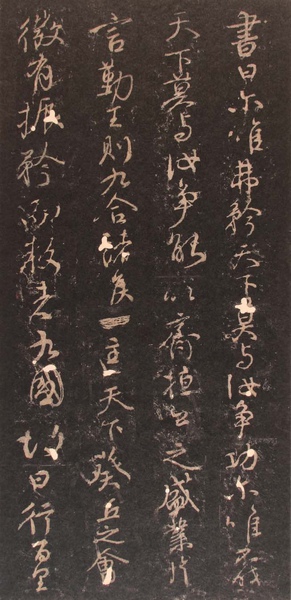 書曰尒唯弗矜天下莫与汝爭功尒唯不伐
天下莫与汝爭能以齊桓公之盛業片
言勤王則九合諸侯一匡天下葵丘之會
微有振矜而叛者九國故曰行百里